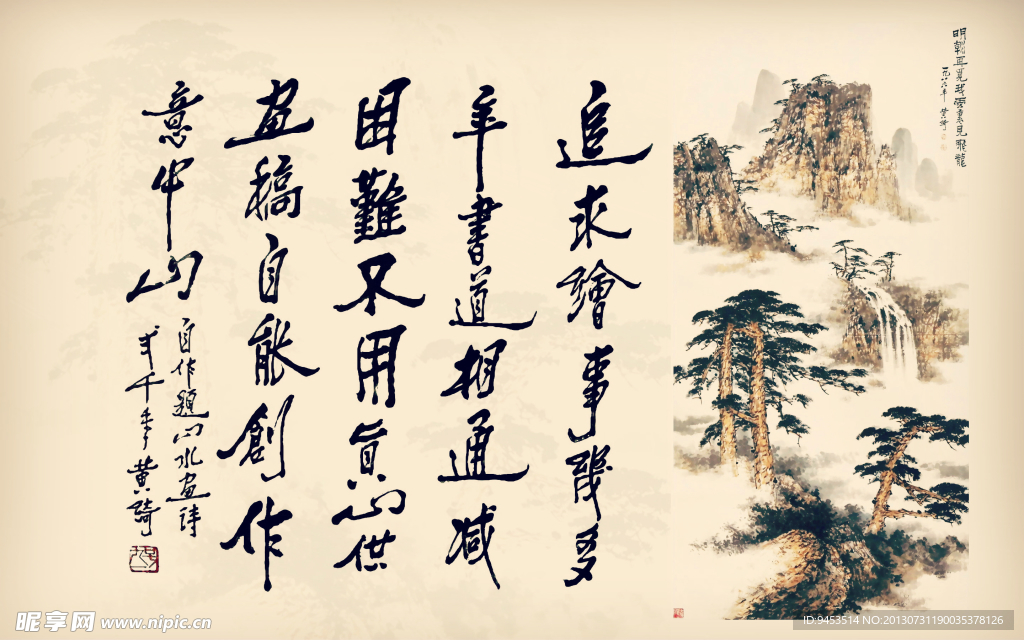 明朝再覓我雲裏見飛龍
追求繪事幾多
年書道相通减
困難不用真心供
画稿自能創作
意中山
自作題山水画詩
弍千季
昵享网 www.nipic.cn
ID:9453514 NO:20130731190035378126